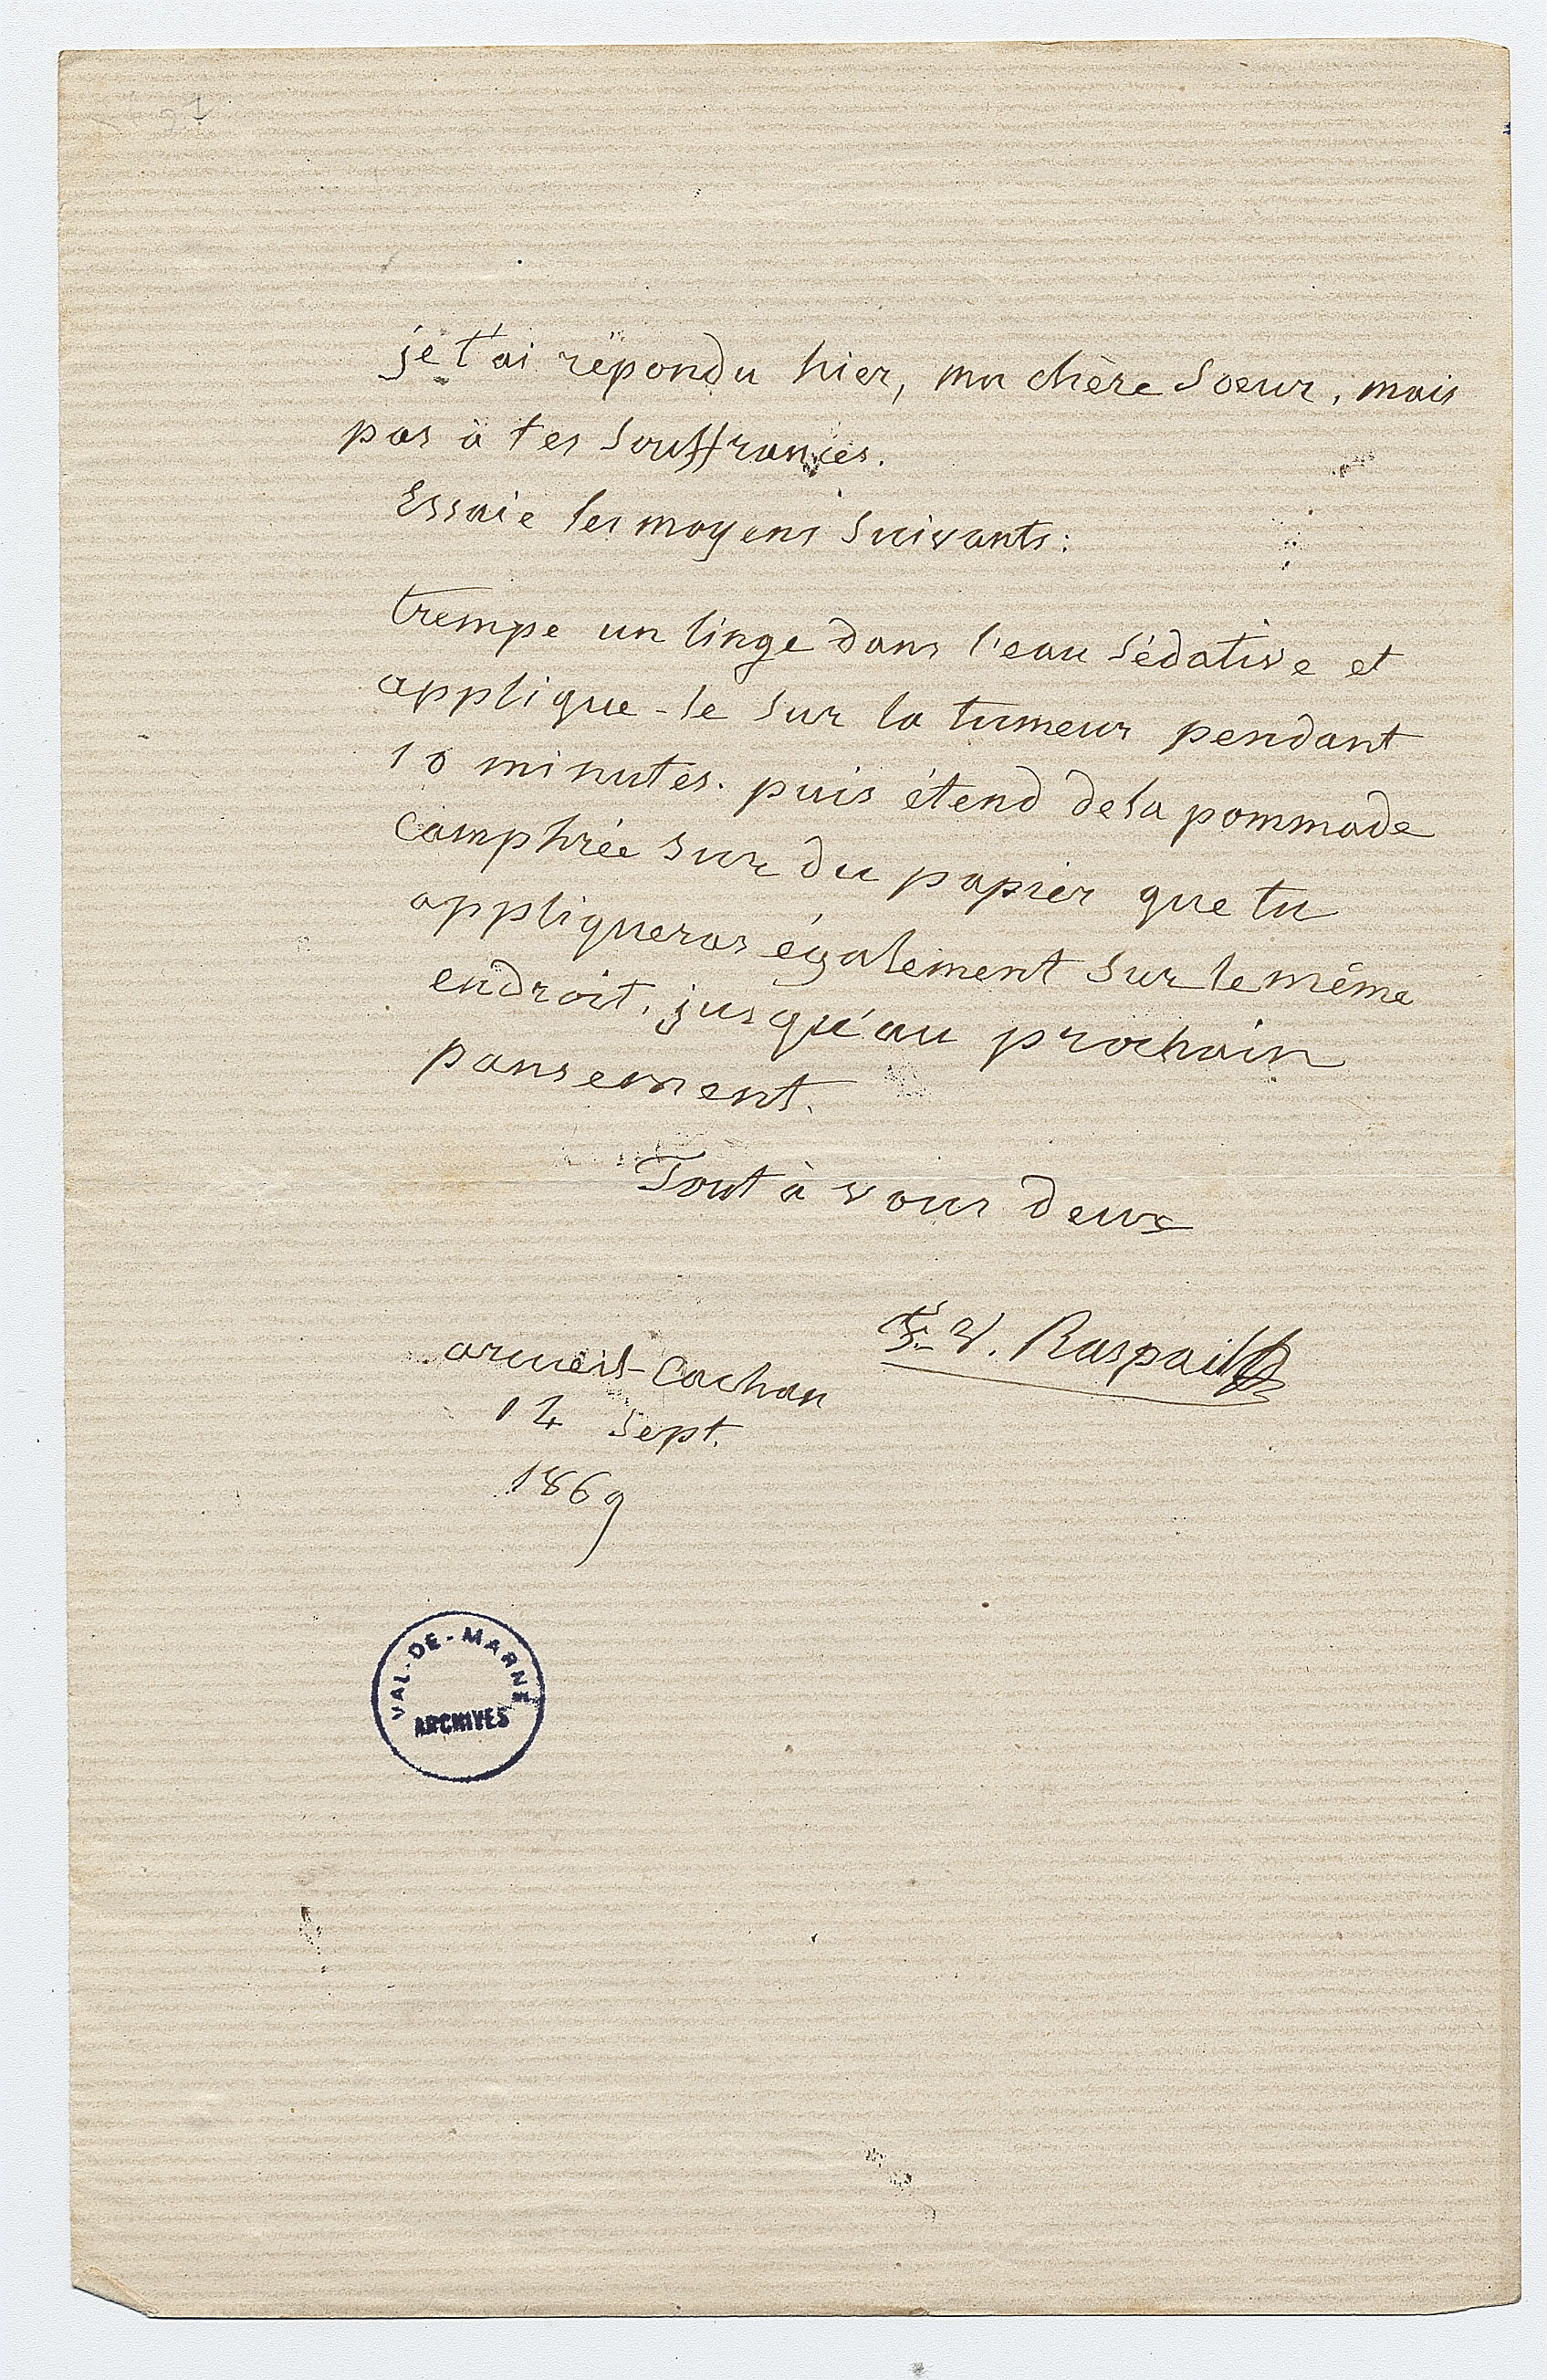 je t'ai répondu hier, ma chère soeur, mais
pas à tes souffrances.
Essaie les moyens suivants:
trempe un linge dans l'eau sédative et
applique-le sur la tumeur pendant
10 minutes. puis étend de la pommade
camphrée sur du papier que tu
appliqueras également sur le même
endroit, jusqu'au prochain
pansement.
Tout à vous deux
F.-V. Raspail
arcueil-Cachan
14 sept.
1869
VAL-DE-MARNE
ARCHIVES